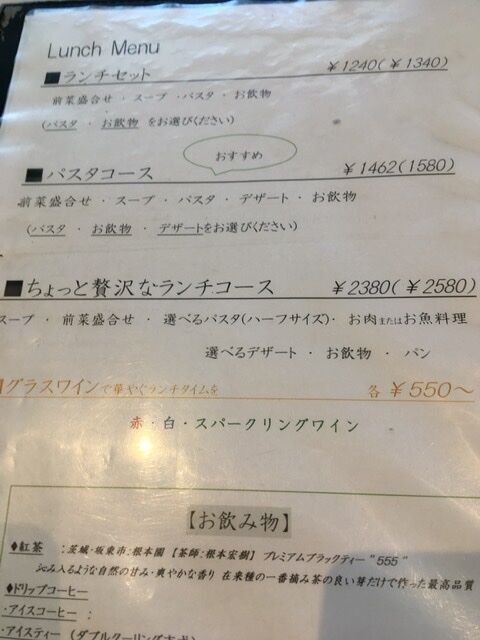 Lunch Menu
■ランチセット ￥1240(￥1340)
前菜盛合せ・スープ・パスタ・お飲物
(パスタ・お飲物をお選びください)
おすすめ
■パスタコース ￥1462(1580)
前菜盛合せ・スープ・パスタ・デザート・お飲物
(パスタ・お飲物・デザートをお選びください)
■ちょっと贅沢なランチコース ￥2380(￥2580)
スープ・前菜盛合せ・選べるパスタ(ハーフサイズ)・お肉またはお魚料理
選べるデザート・お飲物・パン
グラスワインで華やぐランチタイムを 各￥550〜
赤・白・スパークリングワイン
【お飲み物】
◆紅茶 ：茨城・坂東市：根本園【茶師：根本宏樹】プレミアムブラックティー"555"
沁み入るような自然の甘み・爽やかな香り 在来種の一番摘み茶の良い芽だけで作った最高品質
◆ドリップコーヒー
・アイスコーヒー：
・アイスティー(ダブルクーリング方式)